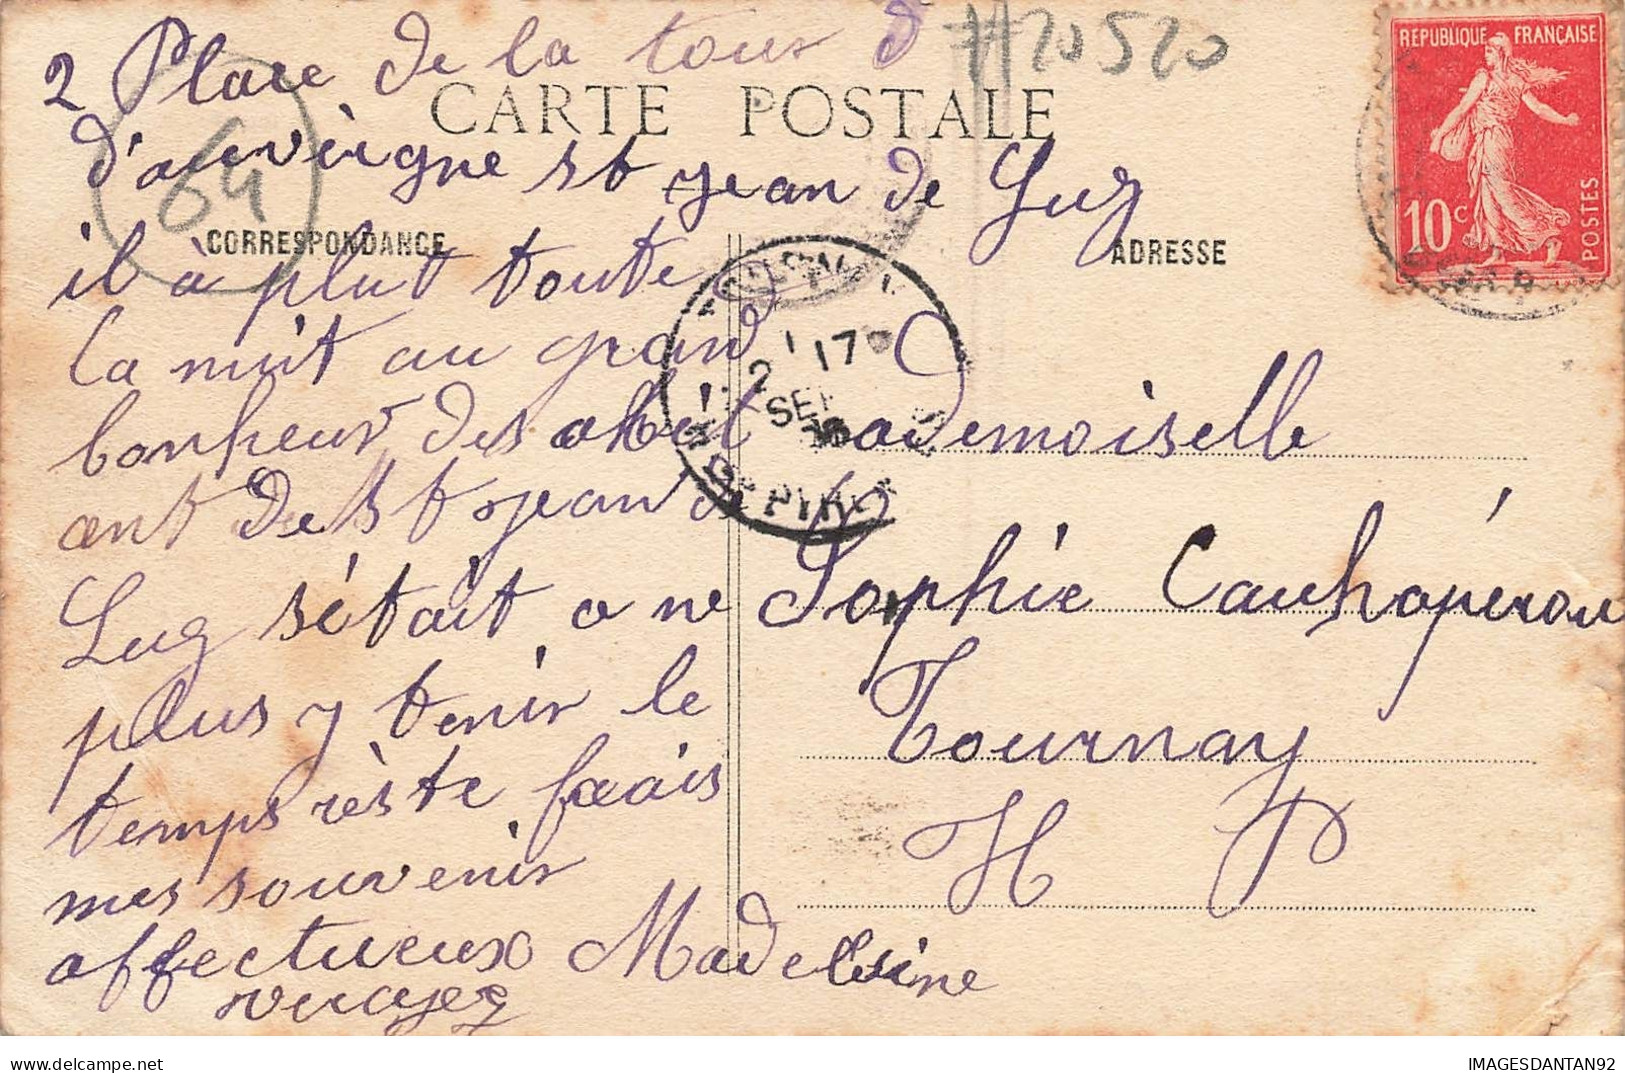 #20520
2 Place de la tour d
CARTE POSTALE
d'auvèrgne st jean de Luz
64
CORRESPONDANCE
ADRESSE
il à plut toute
la nuit au grand
bonheur des abit
ant de st jean de
Luz s'était a ne
plus y tenir le
temps rèste faais
mes souvenir
affectueux Madeleine
Mademoiselle
Sophie Cauhapérou
Tournay
H P
REPUBLIQUE FRANÇAISE
10c
POSTES
2 1 17
SEP
IMAGESDANTAN92